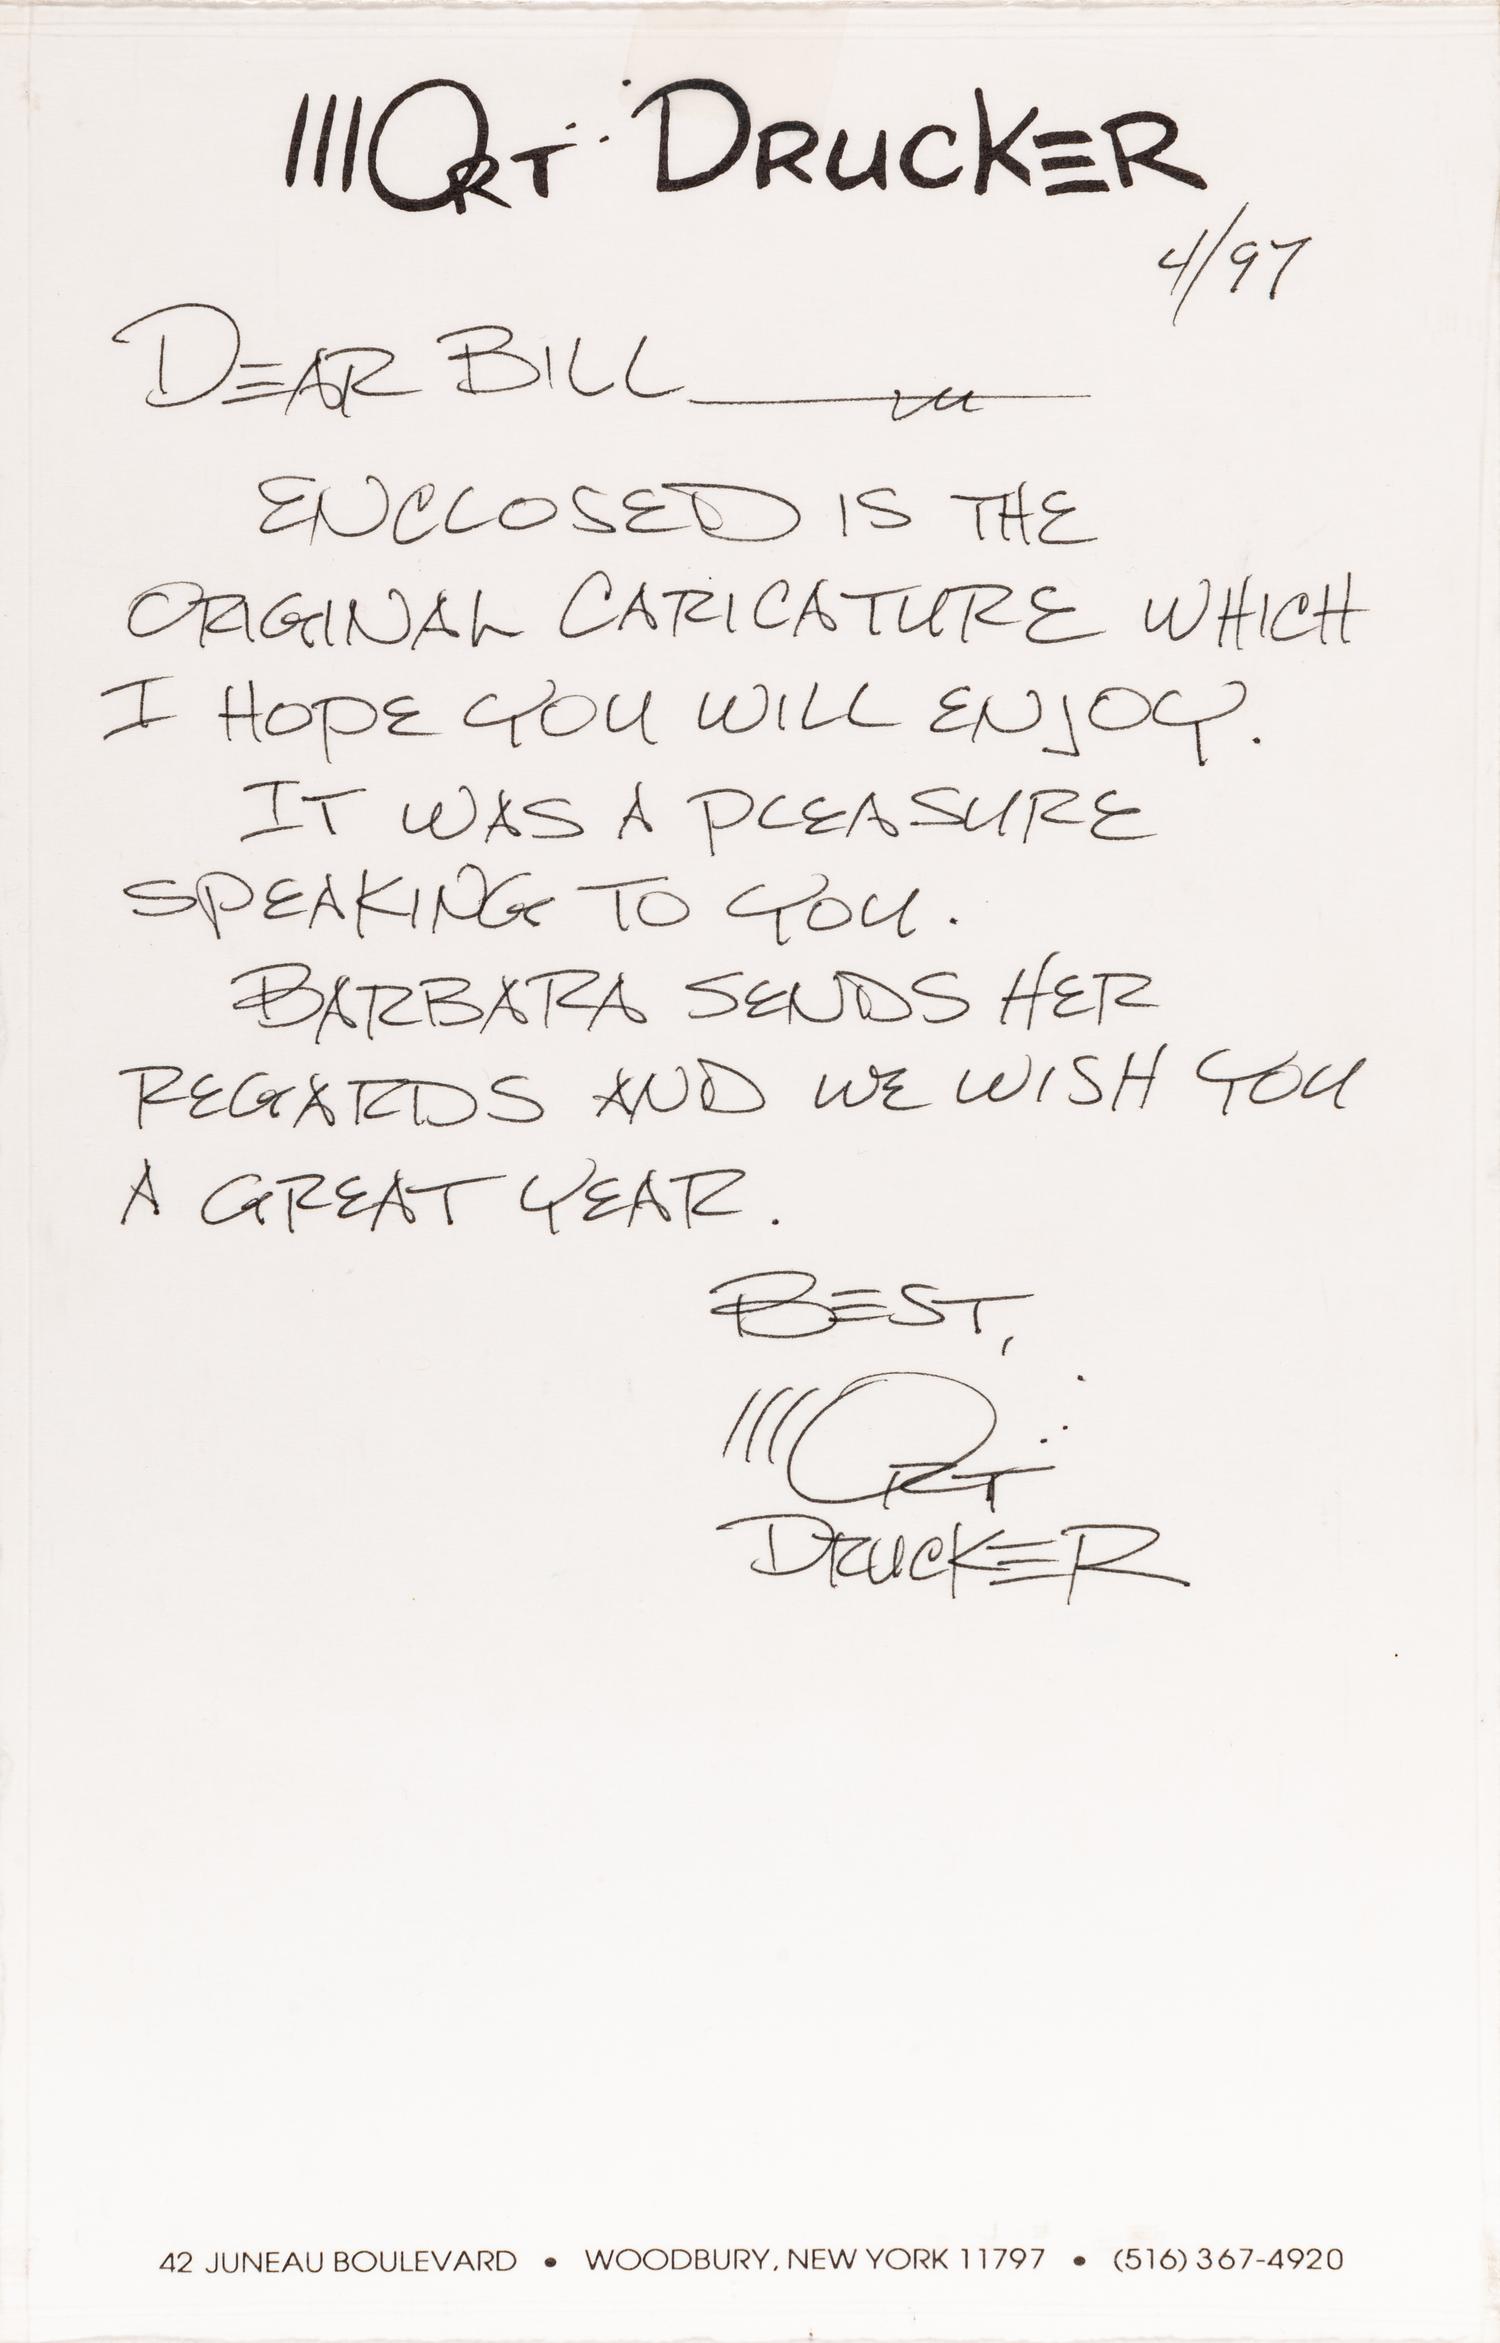 MORT DRUCKER
4/97
DEAR BILL
ENCLOSED IS THE
ORIGINAL CARICATURE WHICH
I HOPE YOU WILL ENJOY.
IT WAS A PLEASURE
SPEAKING TO YOU.
BARBARA SENDS HER
REGARDS AND WE WISH YOU
A GREAT YEAR.
BEST,
MORT
DRUCKER
42 JUNEAU BOULEVARD • WOODBURY, NEW YORK 11797 • (516) 367-4920